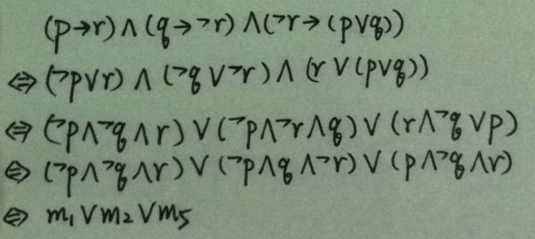 (p→r)∧(q→¬r)∧(¬r→(p∨q))
⇔(¬p∨r)∧(¬q∨¬r)∧(r∨(p∨q))
⇔(¬p∧¬q∧r)∨(¬p∧¬r∧q)∨(r∧¬q∨p)
⇔(¬p∧¬q∧r)∨(¬p∧q∧¬r)∨(p∧¬q∧r)
⇔ m₁∨m₂∨m₅